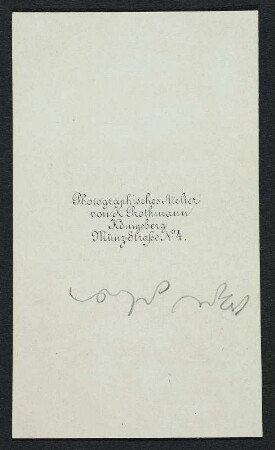 Photographisches Atelier
von K. Prothmann
Königsberg
Münz-Straße No. 4.